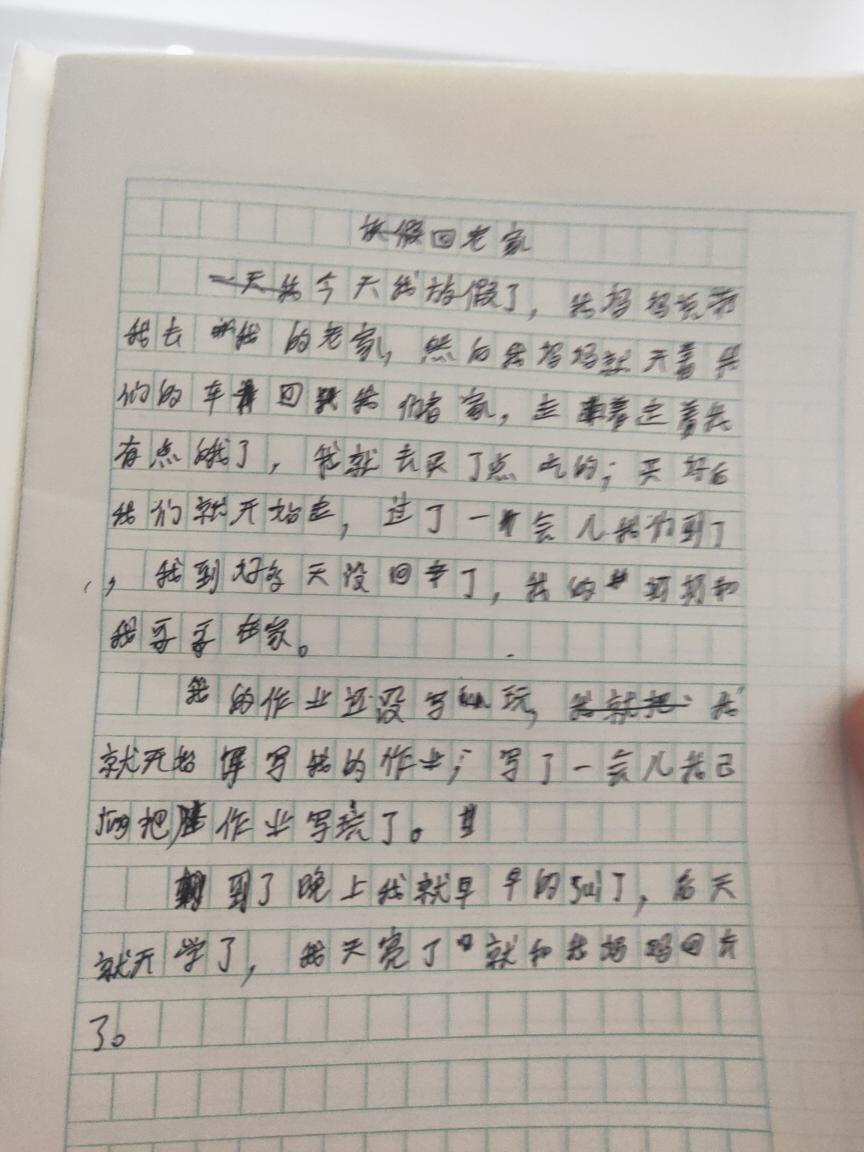 放假回老家
今天我放假了，我妈妈就带
我去我的老家，然后我妈妈就开着我
们的车回我们老家，走着走着我
有点饿了，我就去买了点吃的；买好后
我们就开始走，过了一会儿我们到了
，我到好多天没回来了，我的奶奶和
我在家。
我的作业还没写玩，我
就开始写我的作业；写了一会儿我已
把作业写完了。
到了晚上我就早早的sui了，后天
就开学了，我天亮了就和我妈妈回去
了。